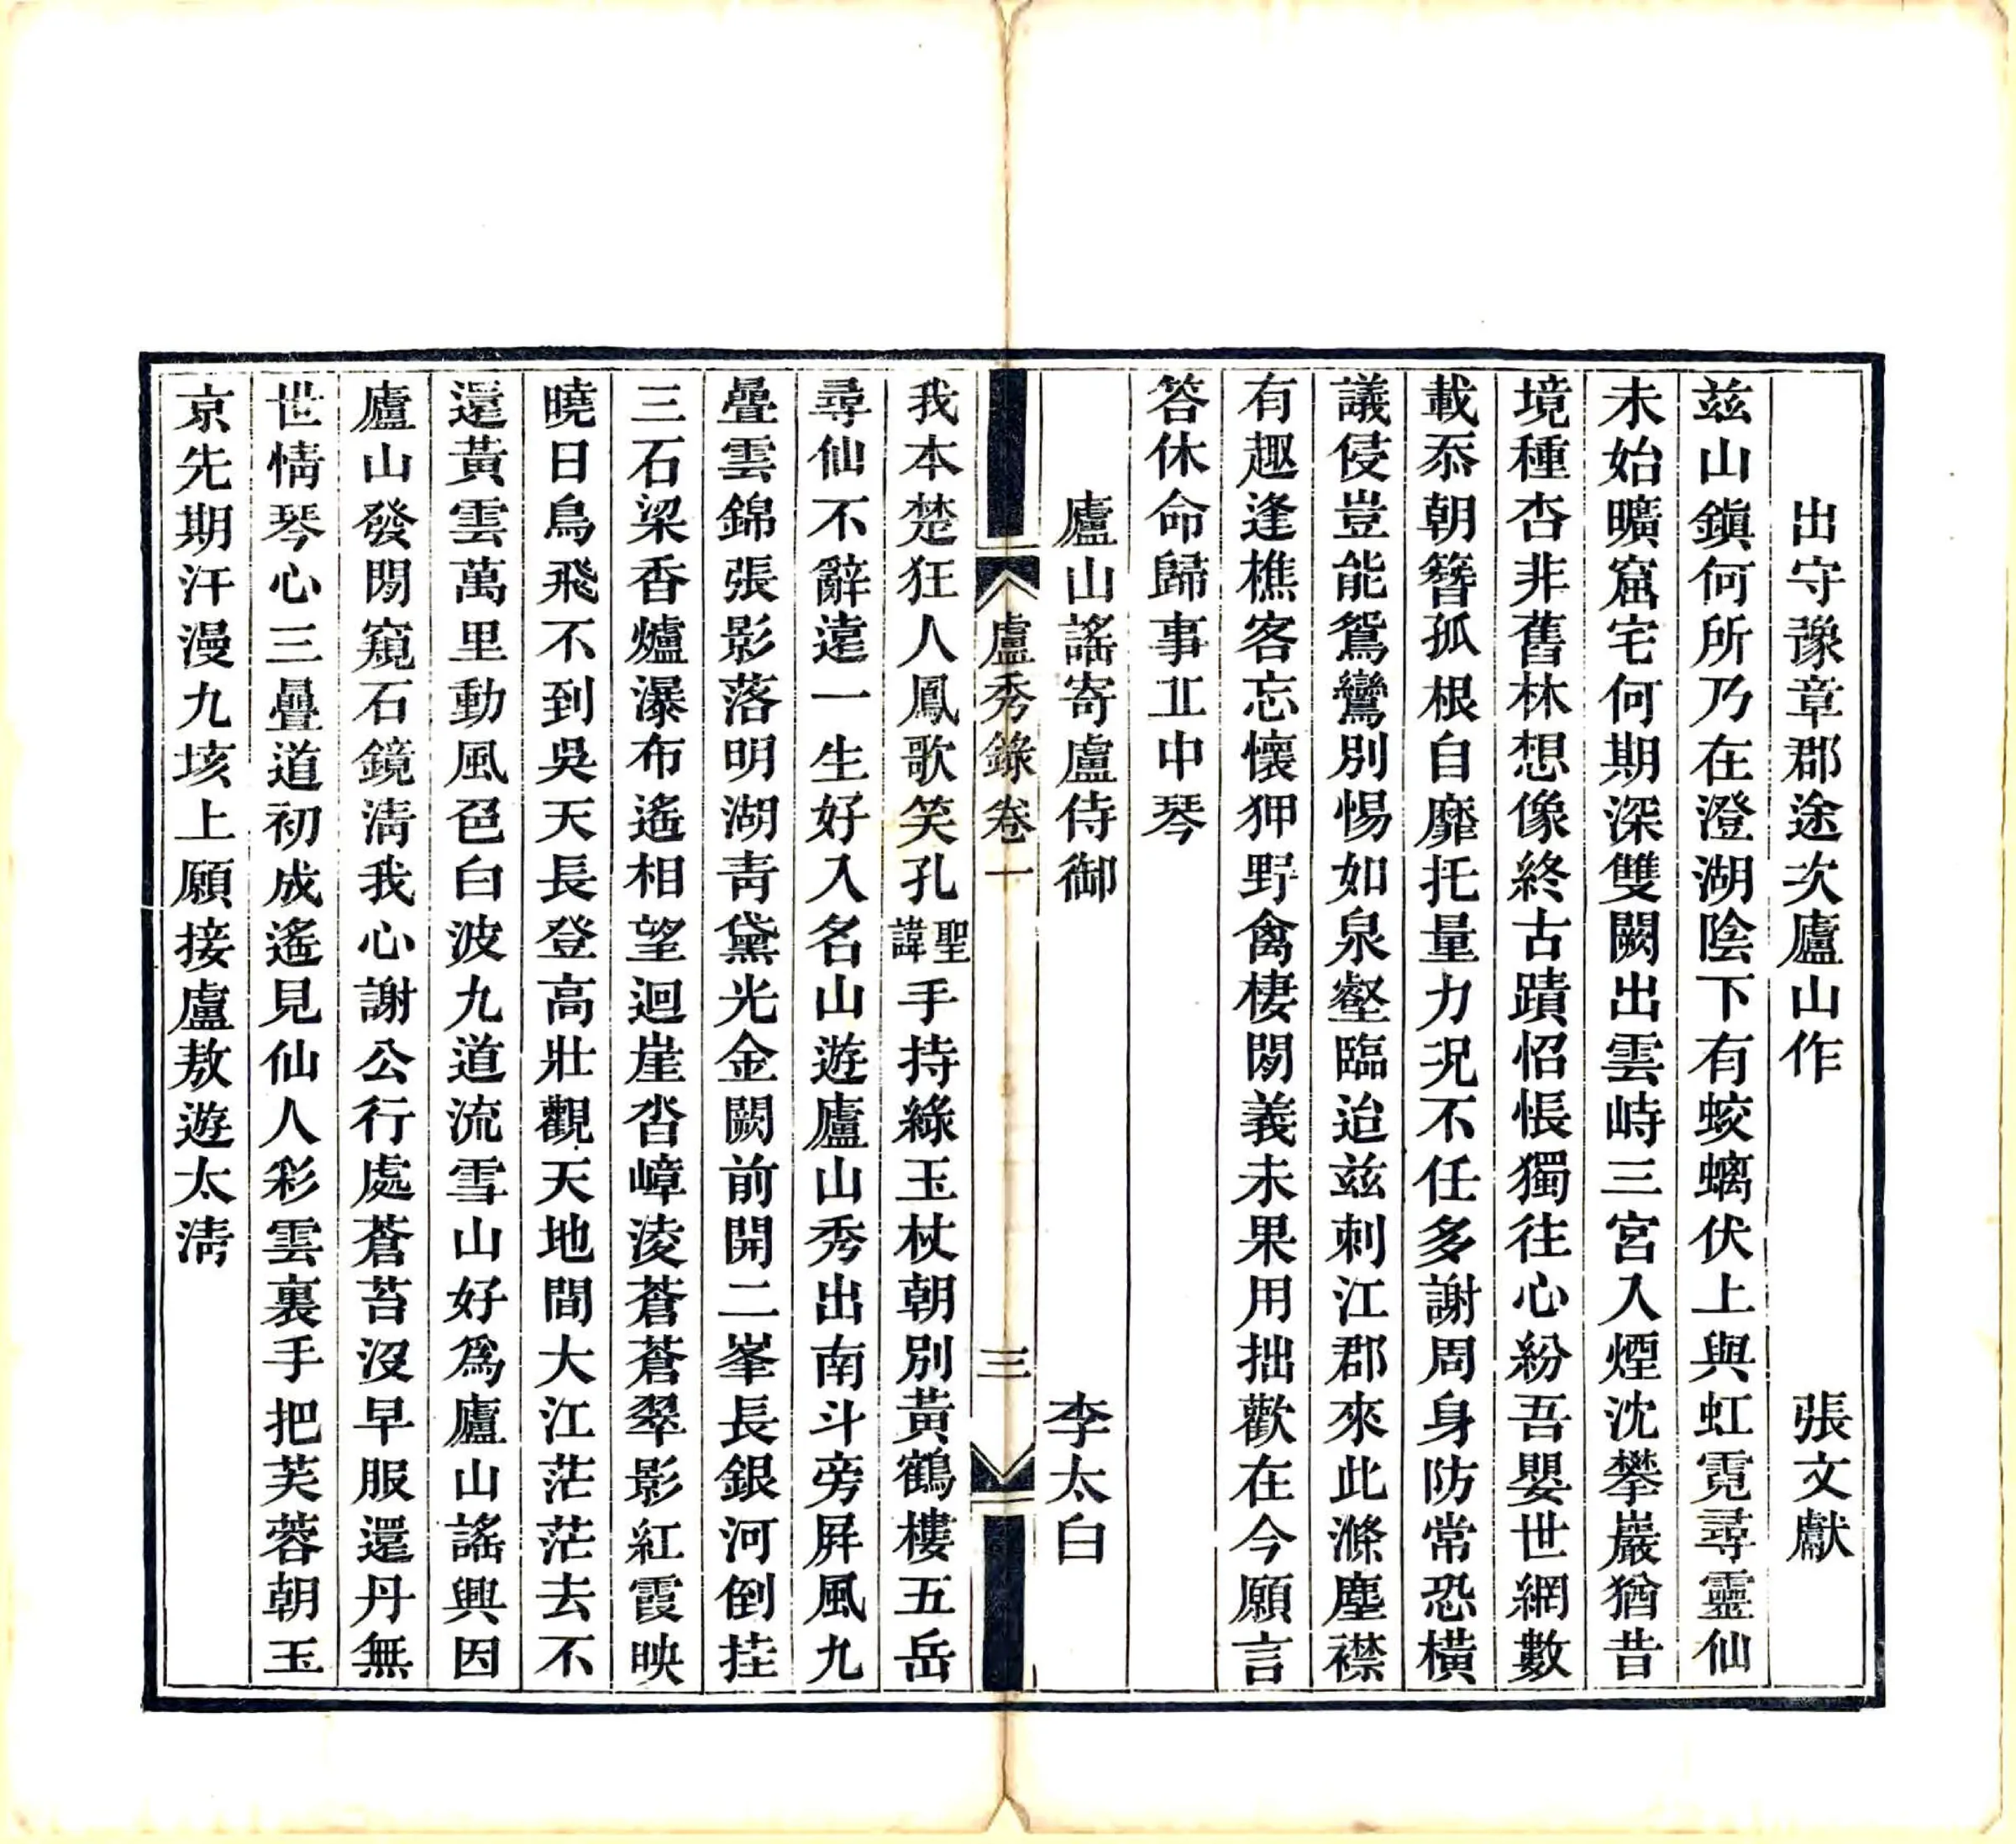 出守豫章郡途次廬山作　張文獻
茲山鎭何所乃在澄湖陰下有蛟螭伏上與虹霓尋靈仙
未始曠窟宅何期深雙闕出雲峙三宮入煙沈攀巖猶昔
境種杏非舊林想像終古蹟怊悵獨往心紛吾嬰世網數
載忝朝簪孤根自靡托量力況不任多謝周身防常恐橫
議侵豈能鴛鸞別惕如泉壑臨迨茲刺江郡來此滌塵襟
有趣逢樵客忘懷狎野禽棲閒義未果用拙歡在今願言
答休命歸事丘中琴
廬山謠寄盧侍御　李太白
盧秀錄卷一　三
我本楚狂人鳳歌笑孔聖諱手持綠玉杖朝別黃鶴樓五岳
尋仙不辭遠一生好入名山遊廬山秀出南斗旁屏風九
疊雲錦張影落明湖青黛光金闕前開二峯長銀河倒挂
三石梁香爐瀑布遙相望迴崖沓嶂淩蒼蒼翠影紅霞映
曉日鳥飛不到吳天長登高壯觀天地間大江茫茫去不
還黃雲萬里動風色白波九道流雪山好爲廬山謠興因
廬山發閒窺石鏡清我心謝公行處蒼苔沒早服還丹無
世情琴心三疊道初成遙見仙人彩雲裏手把芙蓉朝玉
京先期汗漫九垓上願接盧敖遊太清